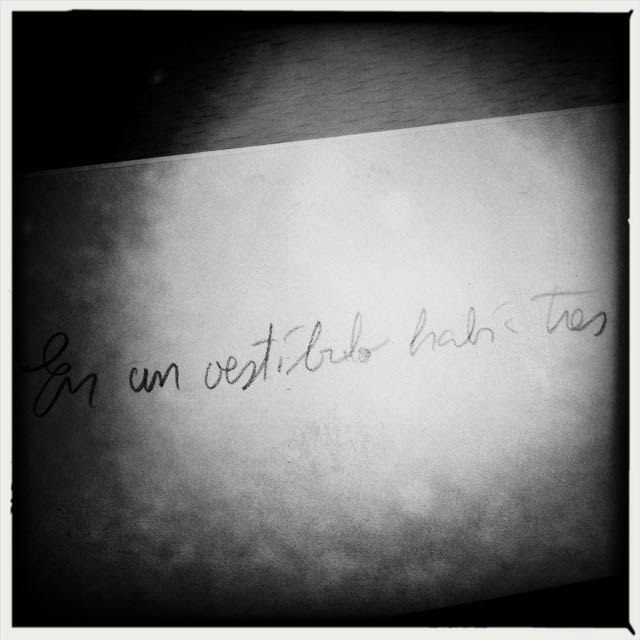 En un vestíbulo había tres